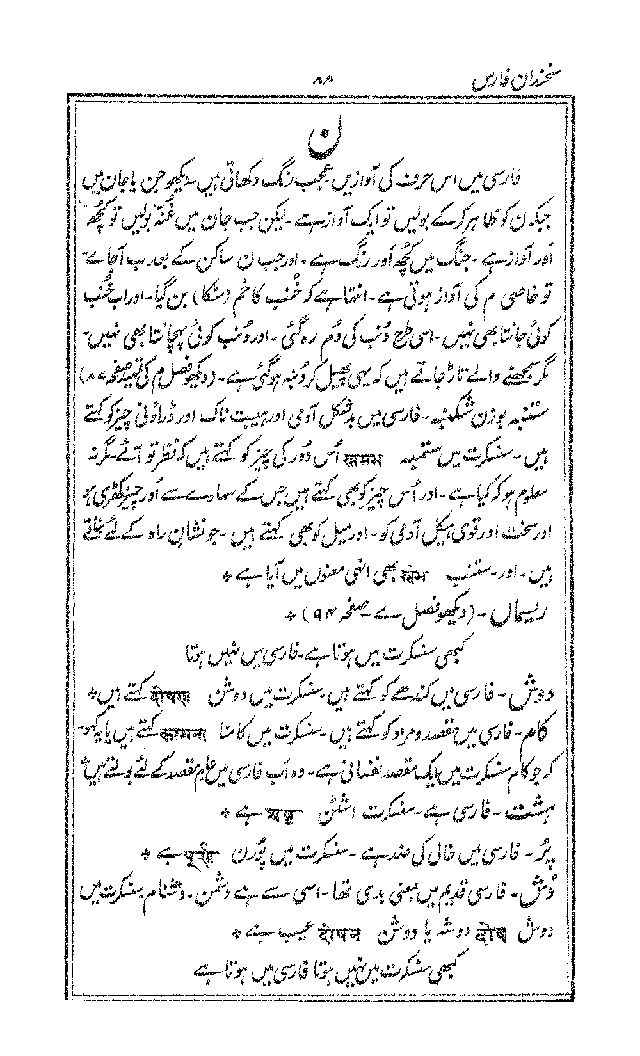 سخندان فارس
۸۸
ن
فارسی میں اس حرف کی آوازیں عجب رنگ دکھاتی ہیں۔ دیکھو جن یا جان میں
جبکہ ن کو ظاہر کرکے بولیں تو ایک آواز ہے۔ لیکن جب جان میں غنّہ بولیں تو کچھ
اور آواز ہے۔ جنگ میں کچھ اور رنگ ہے۔ اور جب ن ساکن کے بعد ب آجائے۔
تو خاصی م کی آواز ہوتی ہے۔ انتہا ہے کہ خُنب کا خُم (مٹکا) بن گیا۔ اور اب خُنب
کوئی جانتا بھی نہیں۔ اسی طرح دُنب کی دُم رہ گئی۔ اور دُنب کوئی پہچانتا بھی نہیں۔
مگر سمجھنے والے تاڑ جاتے ہیں کہ یہی پھیل کر دُنبہ ہوگئی ہے۔ (دیکھو فصل م کی تمہید صفحہ ۸۷)
ستنبہ بوزن شکنبہ۔ فارسی میں بدشکل آدمی اور ہیبت ناک اور ڈراؤنی چیز کو کہتے
ہیں۔ سنسکرت میں ستمبہ اُس دُور کی چیز کو کہتے ہیں کہ نظر تو آئے۔ مگر نہ
معلوم ہو کہ کیا ہے۔ اور اُس چیز کو بھی کہتے ہیں جس کے سہارے سے اَور چیز کھڑی ہو
اور سخت اور قوی ہیکل آدمی کو۔ اور میل کو بھی کہتے ہیں۔ جو نشان راہ کے لئے بناتے
ہیں۔ اور۔ ستنب بھی انہی معنوں میں آیا ہے ٭
ریسماں۔ (دیکھو فصل سے صفحہ ۹۴) ٭
کبھی سنسکرت میں ہوتا ہے۔ فارسی میں نہیں ہوتا
دوش۔ فارسی میں کندھے کو کہتے ہیں۔ سنسکرت میں دوشن दोषण کہتے ہیں٭
کام۔ فارسی میں مقصد و مراد کو کہتے ہیں۔ سنسکرت میں کامنا कामना کہتے ہیں یا یہ کہو۔
کہ جو کام سنسکرت میں ایک مقصد نفسانی ہے۔ وہ اب فارسی میں عام مقصد کے لئے بولتے ہیں٭
ہشت۔ فارسی ہے۔ سنسکرت اشٹن ہے ٭
پُر۔ فارسی میں خالی کی ضد ہے۔ سنسکرت میں پُورن ہے ٭
دُش۔ فارسی قدیم میں بمعنی بدی تھا۔ اسی سے ہے دشمن۔ دشنام سنسکرت میں
دوش दोष دوشہ یا دوشن दोषन عیب ہے ٭
کبھی سنسکرت میں نہیں ہوتا فارسی میں ہوتا ہے